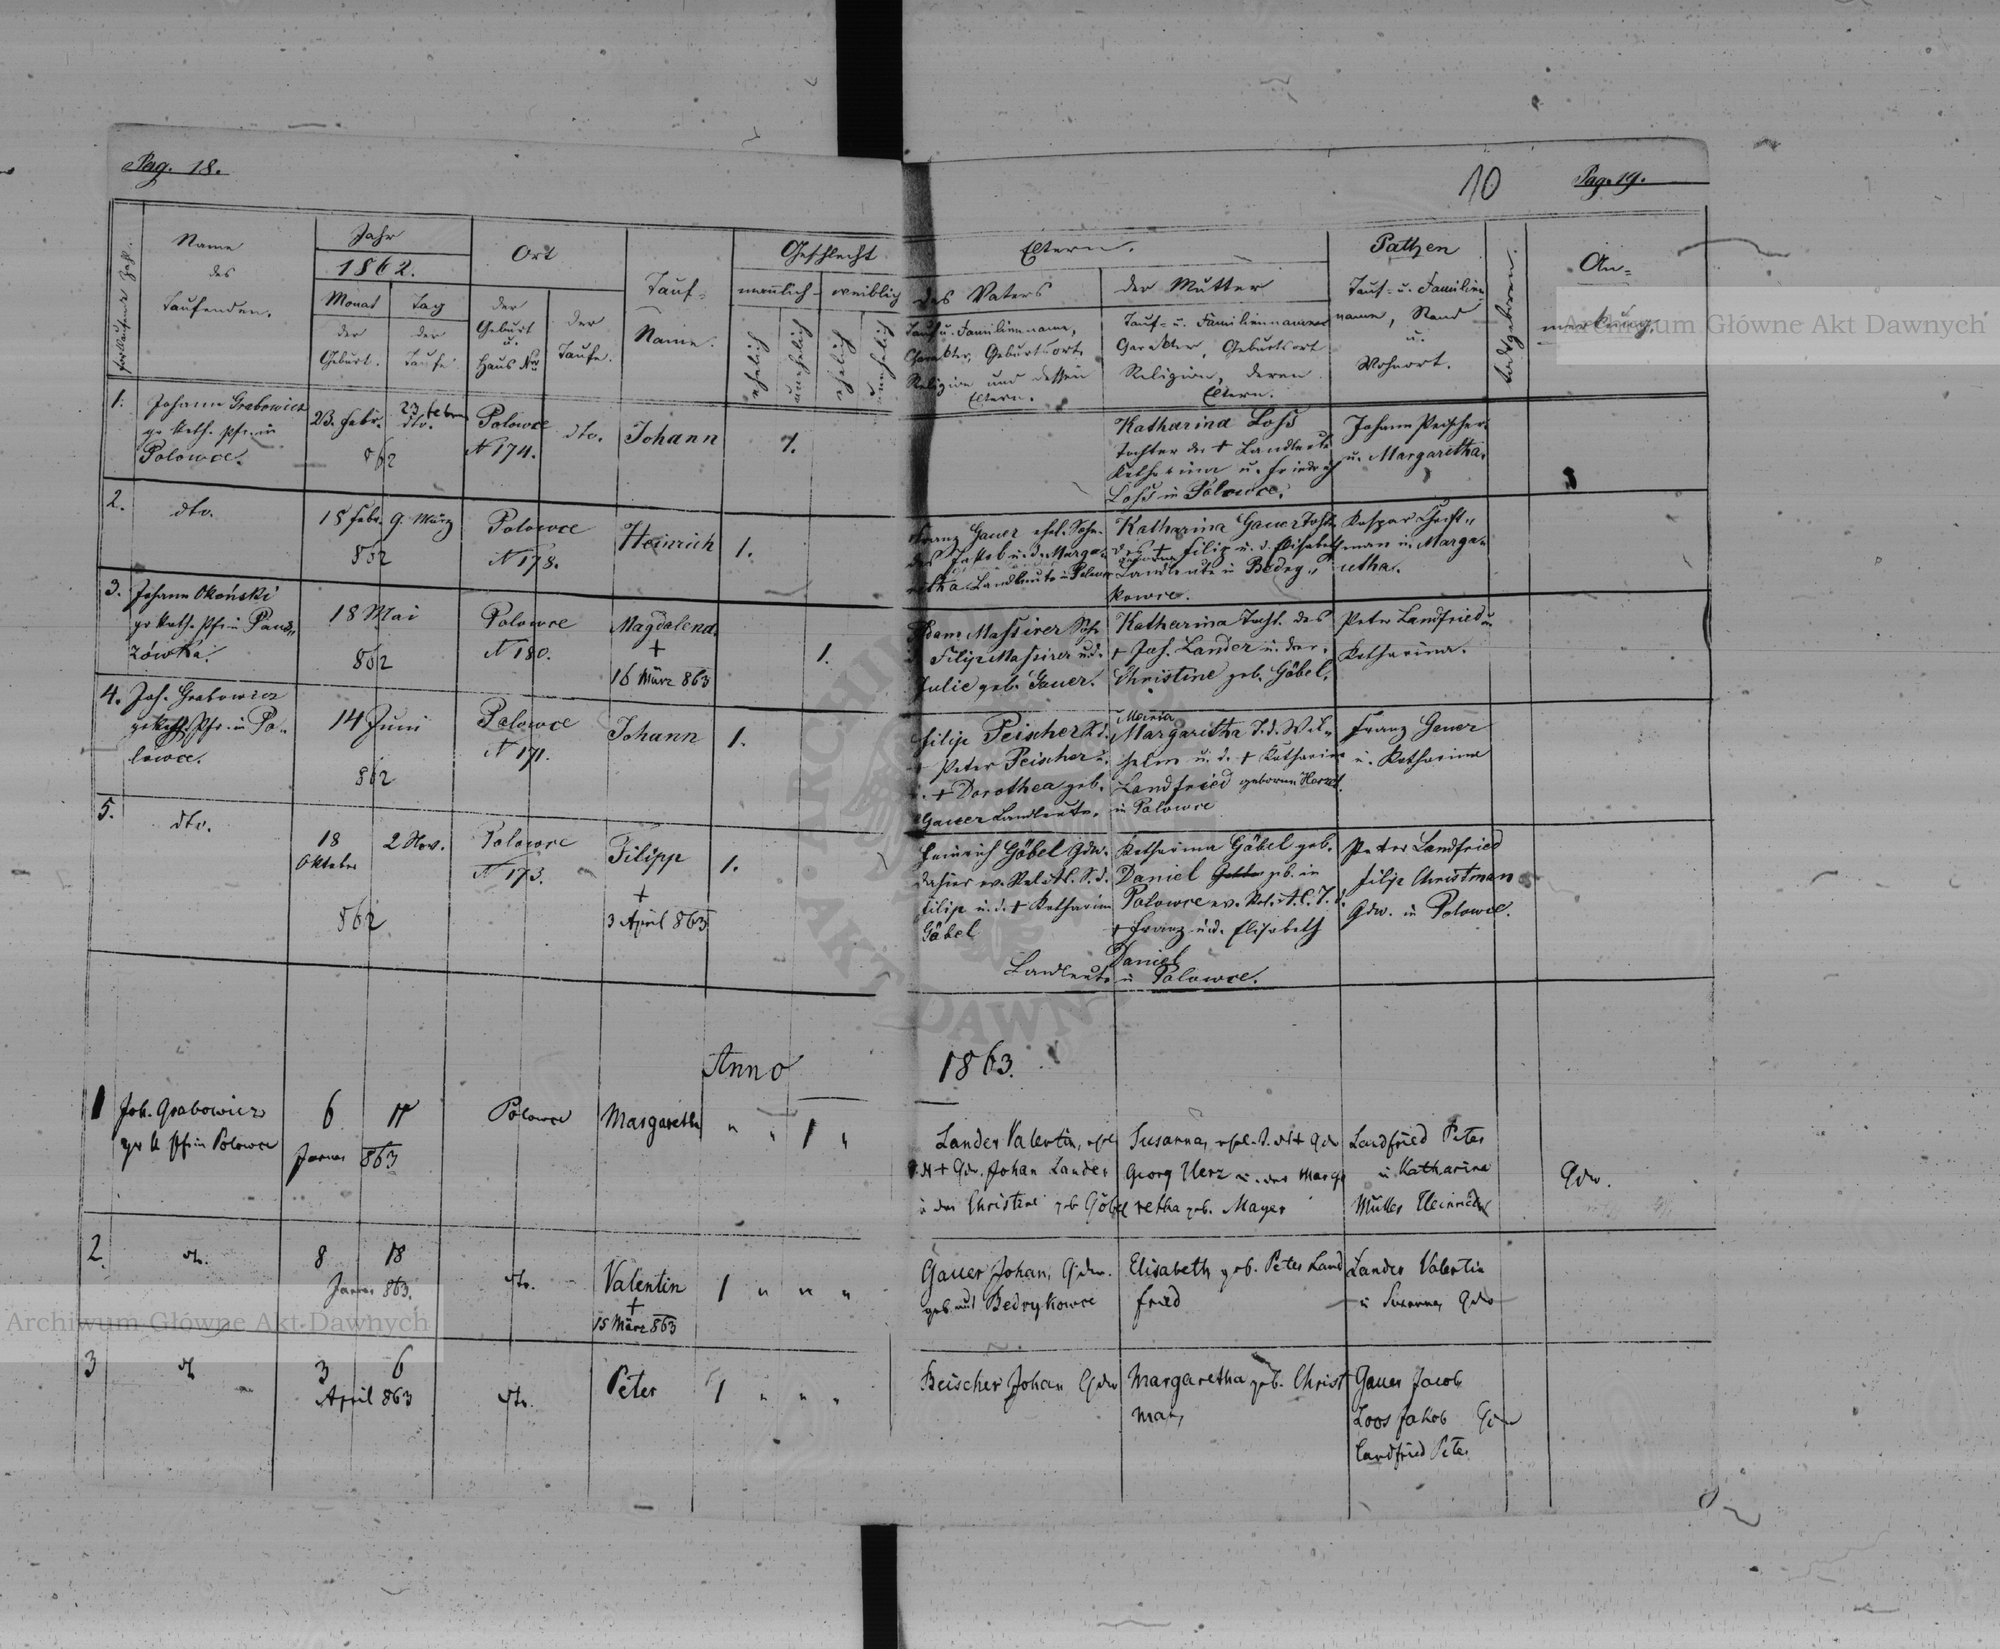 Pag. 18.
10
Pag. 19.
fortlaufende Zahl.
Name
des
Taufenden.
Jahr
1862.
Monat
der
Geburt.
Tag
der
Taufe.
Ort
der
Geburt
u.
Haus Nro
der
Taufe.
Tauf-
Name.
Geschlecht
männlich
weiblich
ehelich
unehelich
ehelich
unehelich
Eltern.
des Vaters
Tauf u. Familienname,
Charakter, Geburtsort,
Religion und dessen
Eltern.
der Mutter
Tauf- u. Familiennamen
Charakter, Geburtsort
Religion, deren
Eltern.
Pathen
Tauf- u. Familien
name, Stand
u.
Wohnort.
todtgeboren.
An-
merkung.
1.
Johann Grabowicz
gr. kath. Pfr. in
Polowce.
23. Febr.
23. Febru
dto.
862
Polowce
N 174.
dto.
Johann
1.
Katharina Loss
Tochter der + Landleute
Katharina u. Friedrich
Loss in Polowce.
Johann Peischer
u. Margaretha.
2.
dto.
15 Febr. 9. März
862
Polowce
N 178.
Heinrich
1.
Franz Gauer ehel. Sohn
des Jakob u. d. Marga-
retha Landleute in Polowce
Katharina Gauer Tocht.
des + Filip u. d. Elisabeth
Landleute in Bedry-
kowce.
Kaspar Christ-
man u. Marga-
retha.
3.
Johann Okoński
gr. kath. Pfr. in Pauz-
zówka.
18 Mai
862
Polowce
N 180.
Magdalena
+
16 März 863
1.
Adam Massirer Sohn
d. Filip Massirer u. d.
Julie geb. Gauer.
Katharina Tocht. des
+ Joh. Lander u. der
Christine geb. Göbel.
Peter Landfried u.
Katharina.
4.
Joh. Grabowicz
gr. kath. Pfr. in Po-
lowce.
14 Juni
862
Polowce
N 171.
Johann
1.
Filip Peischer S. d.
+ Peter Peischer u.
d. + Dorothea geb.
Gauer Landleute.
Maria
Margaretha T. d. Wil-
helm u. d. + Katharina
Landfried geborne Herzel.
in Polowce
Franz Gauer
u. Katharina
5.
dto.
18
Oktober
2 Nov.
862
Polowce
N 173.
Filipp
+
3 April 863
1.
Heinrich Göbel Gdw.
dahier ev. Rel. A.C. S. d.
Filip u. d. + Katharina
Göbel
Katharina Göbel geb.
Daniel geb. in
Polowce ev. Rel. A.C. T. d.
+ Franz u. d. Elisabeth
Daniel
Landleute in Polowce.
Peter Landfried
Filip Christman
Gdw. in Polowce.
Anno 1863.
1
Joh. Grabowicz
gr k Pf in Polowce
6
Januar 863
Polowce
Margaretha
" " 1 "
Lander Valentin, ehel.
S. d. + Gdw. Johan Lander
u der Christine geb Göbel
Susanna, ehel. T. des + Gdw
Georg Herz u. der Marga
retha geb. Mayer
Landfried Peter
u Katharina
Müller Heinrich
Gdw.
2.
dto.
8 18
Januar 863.
dto.
Valentin
+
15 März 863
1 " " "
Gauer Johan, Gdw.
geb aus Bedrykowce
Elisabeth geb. Peter Land
fried
Lander Valentin
u Susanna Gdw
3
dto
3 6
April 863
dto.
Peter
1 " " "
Beischer Johan Gdw
Margaretha geb. Christ
man,
Gauer Jacob
Loos Jakob Gdw
Landfried Peter
Archiwum Główne Akt Dawnych
Archiwum Główne Akt Dawnych
ARCHIWUM
AKT DAWNYCH